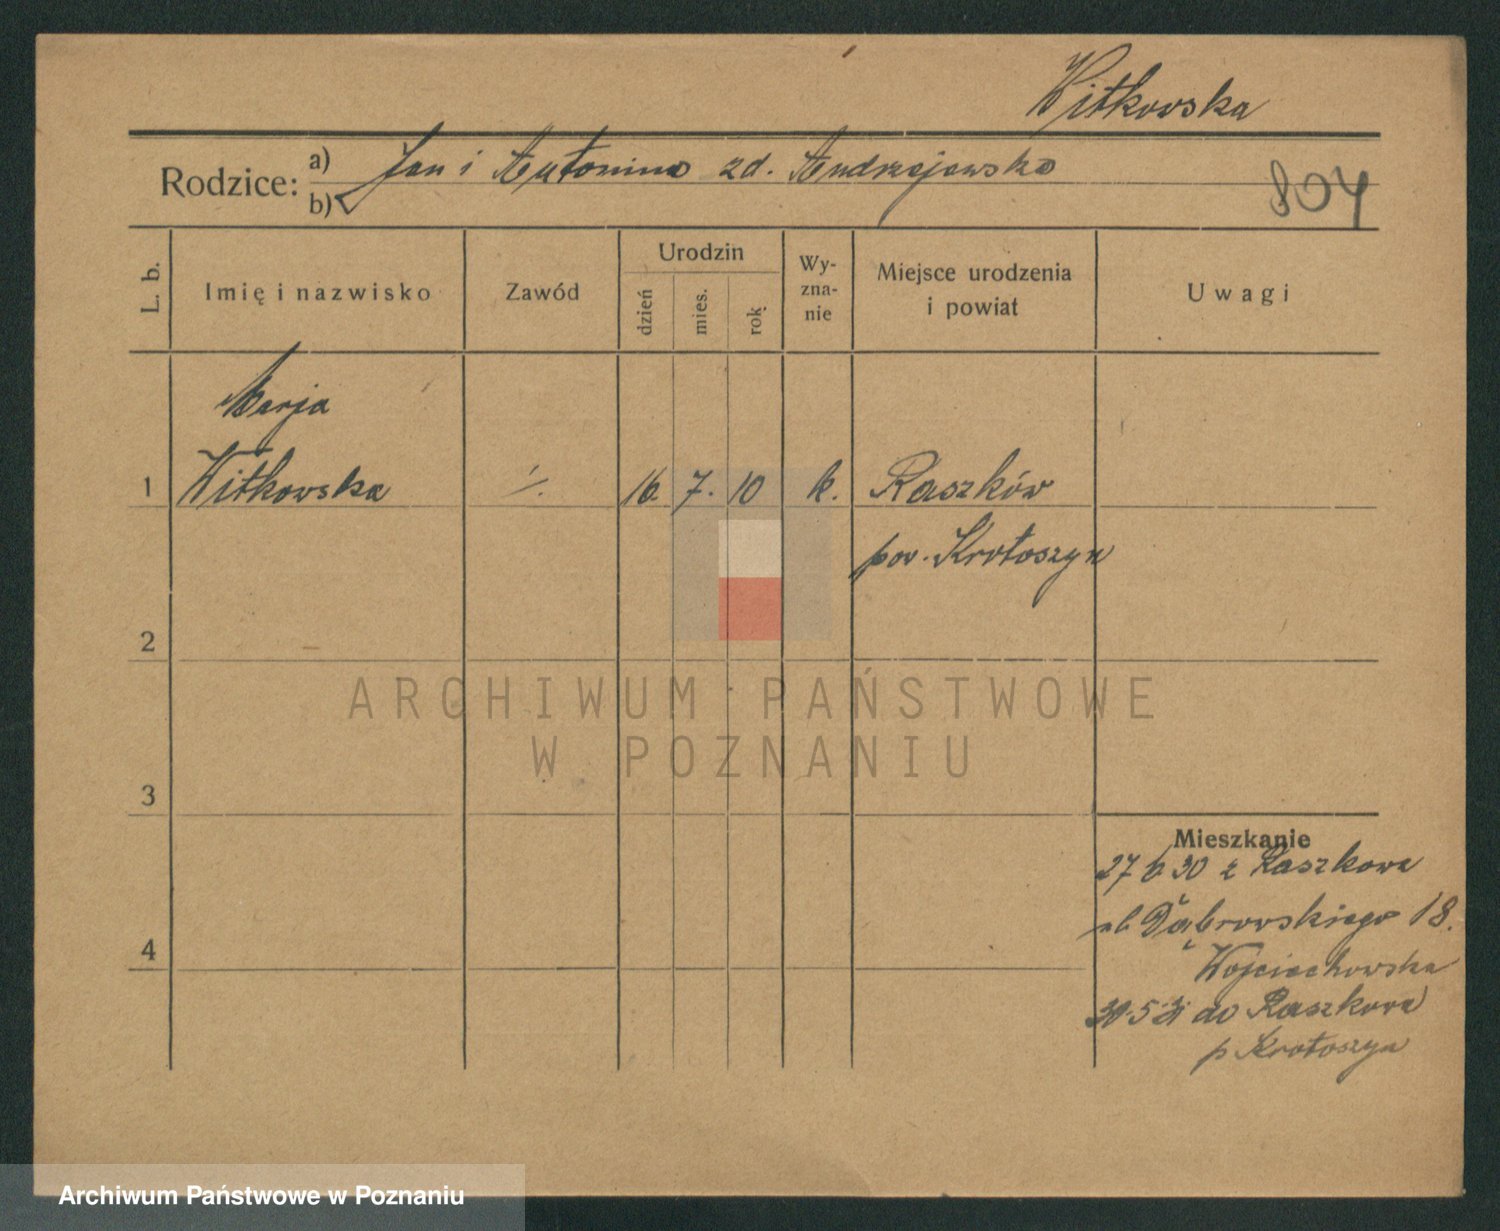 Witkowska
Rodzice: a) Jan i Antonina zd. Andrzejewska
b)
804
L. b.
Imię i nazwisko
Zawód
Urodzin
dzień
mies.
rok
Wy-
zna-
nie
Miejsce urodzenia
i powiat
Uwagi
Marja
1 Witkowska ./. 16. 7. 10 k. Raszków
pow. Krotoszyn
2
3
4
Mieszkanie
27 6 30 z Raszkowa
ul Dąbrowskiego 18.
Wojciechowska
30.5.31 do Raszkowa
p Krotoszyn
ARCHIWUM PAŃSTWOWE
W POZNANIU
Archiwum Państwowe w Poznaniu